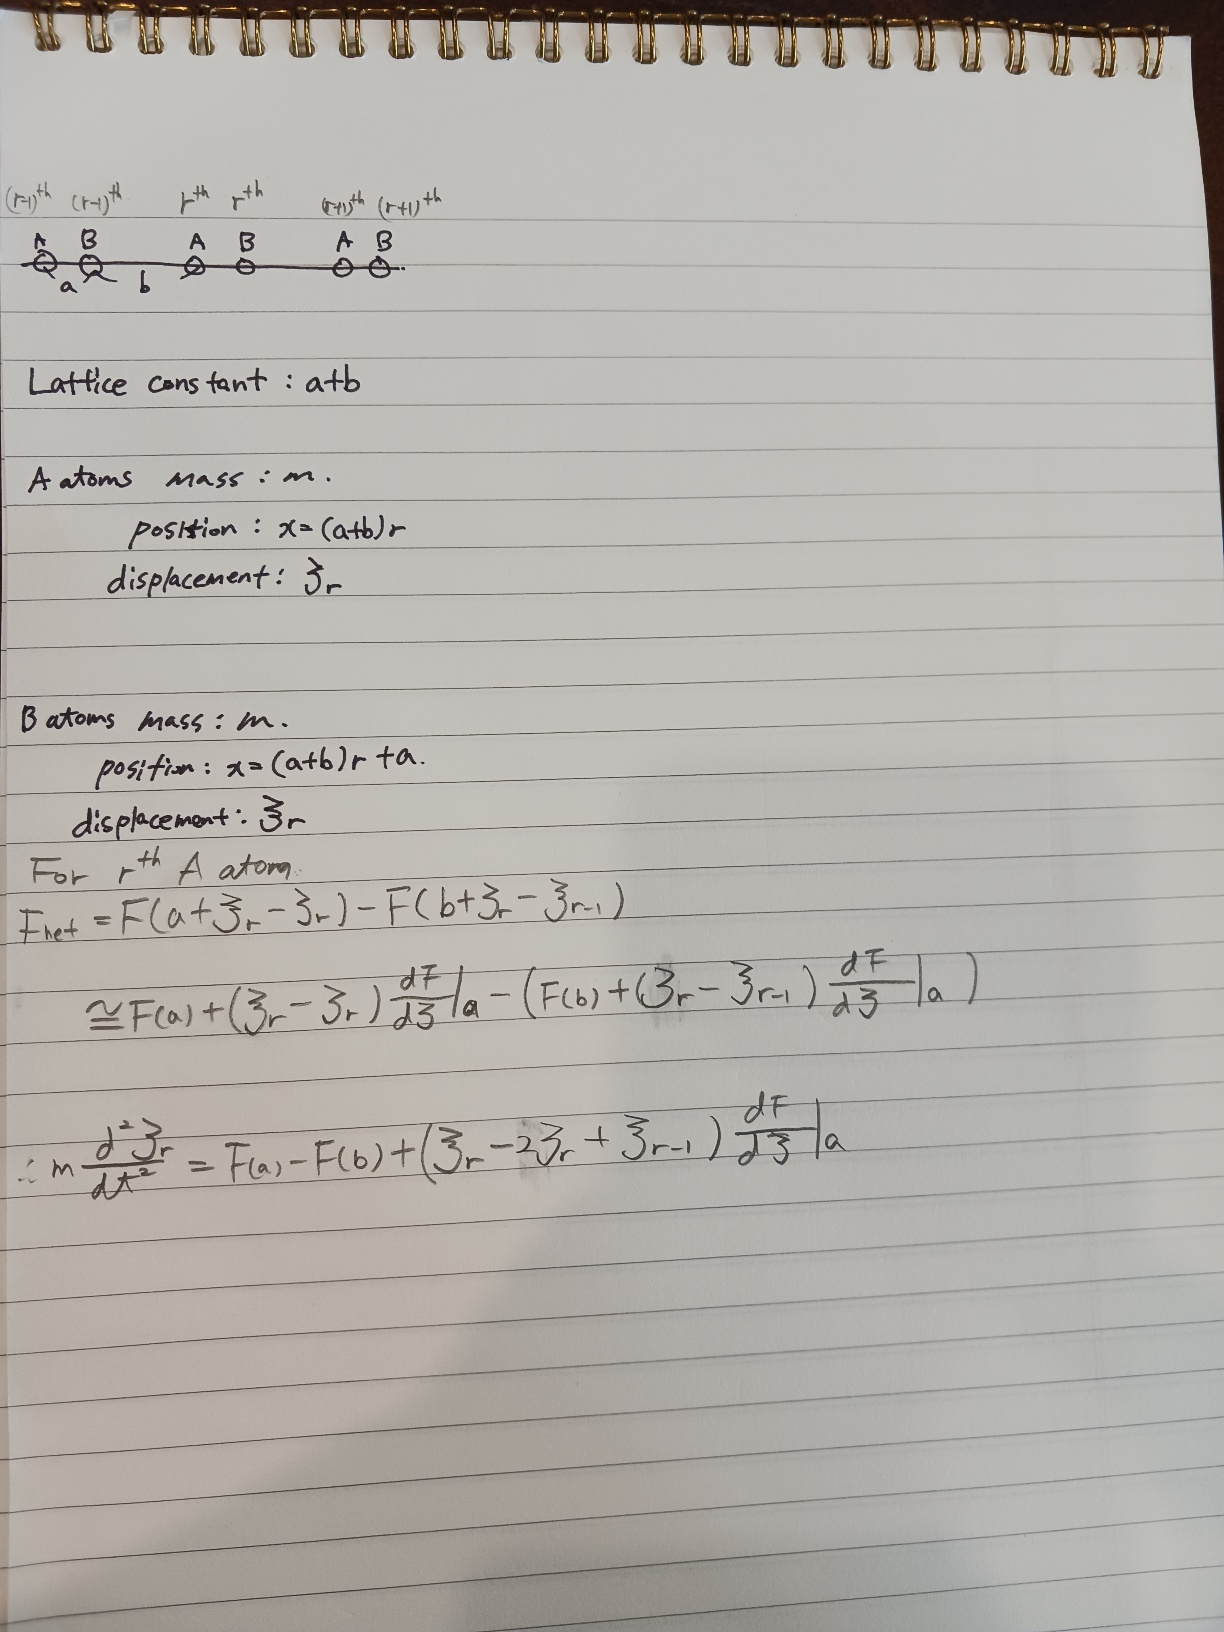 (r-1)th (r-1)th rth rth (r+1)th (r+1)th
A B A B A B
a b
Lattice constant : a+b
A atoms mass : m.
position : x=(a+b)r
displacement : ζr
B atoms mass : m.
position : x=(a+b)r +a.
displacement : ξr
For rth A atom
Fnet = F(a+ξr-ζr)-F(b+ζr-ξr-1)
≅F(a)+(ξr-ζr)dF/dζ|a-(F(b)+(ζr-ξr-1)dF/dζ|a)
∴ m d²ζr/dt² = F(a)-F(b)+(ξr-2ζr+ξr-1)dF/dζ|a